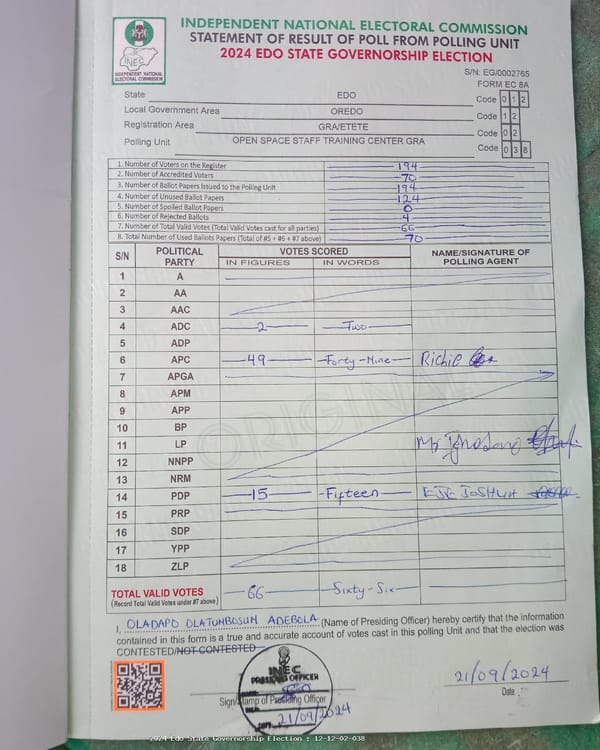 INDEPENDENT NATIONAL ELECTORAL COMMISSION
STATEMENT OF RESULT OF POLL FROM POLLING UNIT
2024 EDO STATE GOVERNORSHIP ELECTION
INEC
INDEPENDENT NATIONAL ELECTORAL COMMISSION
S/N: EG/0002765
FORM EC 8A
State EDO Code 0 1 2
Local Government Area OREDO Code 1 2
Registration Area GRA/ETETE Code 0 2
Polling Unit OPEN SPACE STAFF TRAINING CENTER GRA Code 0 3 8
1. Number of Voters on the Register 194
2. Number of Accredited Voters 70
3. Number of Ballot Papers Issued to the Polling Unit 194
4. Number of Unused Ballot Papers 124
5. Number of Spoiled Ballot Papers 0
6. Number of Rejected Ballots 4
7. Number of Total Valid Votes (Total Valid Votes cast for all parties) 66
8. Total Number of Used Ballots Papers (Total of #5 + #6 + #7 above) 70
S/N POLITICAL PARTY VOTES SCORED NAME/SIGNATURE OF POLLING AGENT
IN FIGURES IN WORDS
1 A
2 AA
3 AAC
4 ADC 2 Two
5 ADP
6 APC 49 Forty-Nine Richie
7 APGA
8 APM
9 APP
10 BP
11 LP Mr
12 NNPP
13 NRM
14 PDP 15 Fifteen JOSHUA
15 PRP
16 SDP
17 YPP
18 ZLP
TOTAL VALID VOTES 66 Sixty-Six
(Record Total Valid Votes under #7 above)
ORIGINAL
I, OLADAPO OLATUNBOSUN ADEBOLA (Name of Presiding Officer) hereby certify that the information
contained in this form is a true and accurate account of votes cast in this polling Unit and that the election was
CONTESTED/NOT CONTESTED
INEC
PRESIDING OFFICER
21/09/2024
Sign/Stamp of Presiding Officer
21/09/2024
Date
2024 Edo State Governorship Election : 12-12-02-038